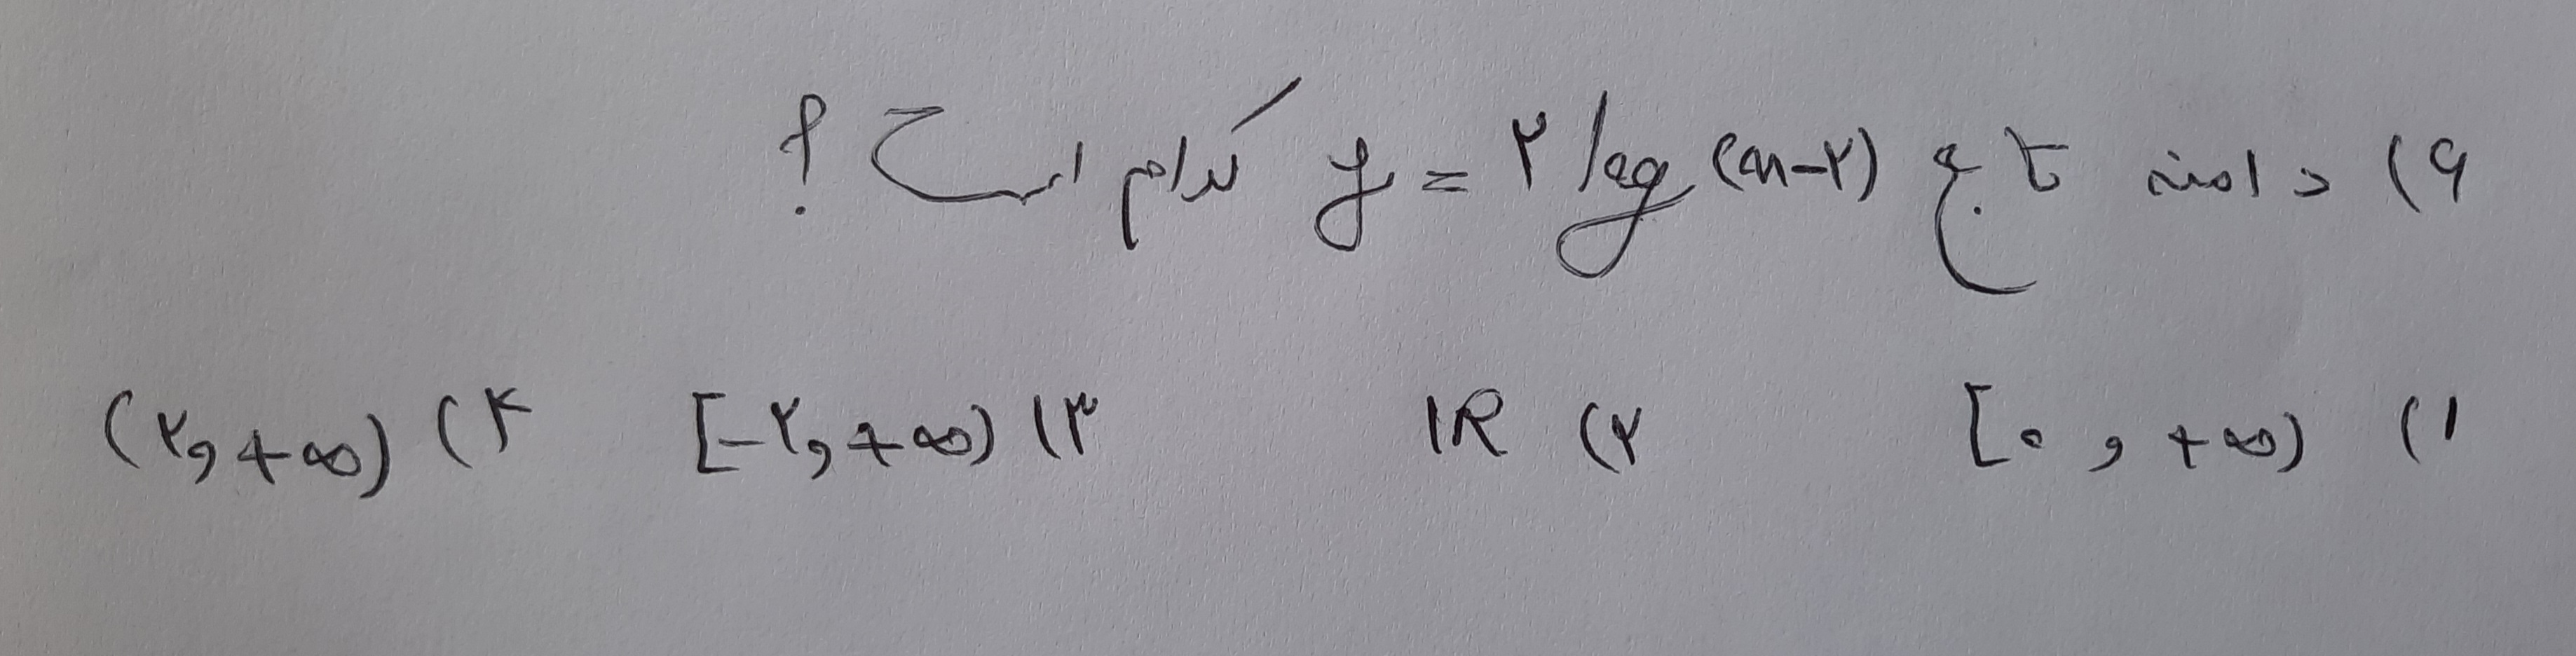 ۹) دامنه تابع y = ۲ log (x-۲) کدام است؟
۱) [۰, +∞) ۲) IR ۳) [-۲, +∞) ۴) (۲, +∞)